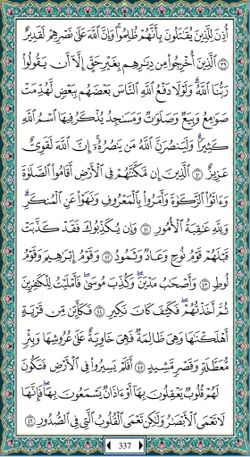 أُذِنَ لِلَّذِينَ يُقَٰتَلُونَ بِأَنَّهُمْ ظُلِمُوا۟ ۚ وَإِنَّ ٱللَّهَ عَلَىٰ نَصْرِهِمْ لَقَدِيرٌ
٣٩ ٱلَّذِينَ أُخْرِجُوا۟ مِن دِيَٰرِهِم بِغَيْرِ حَقٍّ إِلَّآ أَن يَقُولُوا۟
رَبُّنَا ٱللَّهُ ۗ وَلَوْلَا دَفْعُ ٱللَّهِ ٱلنَّاسَ بَعْضَهُم بِبَعْضٍ لَّهُدِّمَتْ
صَوَٰمِعُ وَبِيَعٌ وَصَلَوَٰتٌ وَمَسَٰجِدُ يُذْكَرُ فِيهَا ٱسْمُ ٱللَّهِ
كَثِيرًا ۗ وَلَيَنصُرَنَّ ٱللَّهُ مَن يَنصُرُهُۥٓ ۗ إِنَّ ٱللَّهَ لَقَوِىٌّ
عَزِيزٌ ٤٠ ٱلَّذِينَ إِن مَّكَّنَّٰهُمْ فِى ٱلْأَرْضِ أَقَامُوا۟ ٱلصَّلَوٰةَ
وَءَاتَوُا۟ ٱلزَّكَوٰةَ وَأَمَرُوا۟ بِٱلْمَعْرُوفِ وَنَهَوْا۟ عَنِ ٱلْمُنكَرِ ۗ
وَلِلَّهِ عَٰقِبَةُ ٱلْأُمُورِ ٤١ وَإِن يُكَذِّبُوكَ فَقَدْ كَذَّبَتْ
قَبْلَهُمْ قَوْمُ نُوحٍ وَعَادٌ وَثَمُودُ ٤٢ وَقَوْمُ إِبْرَٰهِيمَ وَقَوْمُ
لُوطٍ ٤٣ وَأَصْحَٰبُ مَدْيَنَ ۖ وَكُذِّبَ مُوسَىٰ فَأَمْلَيْتُ لِلْكَٰفِرِينَ
ثُمَّ أَخَذْتُهُمْ ۖ فَكَيْفَ كَانَ نَكِيرِ ٤٤ فَكَأَيِّن مِّن قَرْيَةٍ
أَهْلَكْنَٰهَا وَهِىَ ظَالِمَةٌ فَهِىَ خَاوِيَةٌ عَلَىٰ عُرُوشِهَا وَبِئْرٍ
مُّعَطَّلَةٍ وَقَصْرٍ مَّشِيدٍ ٤٥ أَفَلَمْ يَسِيرُوا۟ فِى ٱلْأَرْضِ فَتَكُونَ
لَهُمْ قُلُوبٌ يَعْقِلُونَ بِهَآ أَوْ ءَاذَانٌ يَسْمَعُونَ بِهَا ۖ فَإِنَّهَا
لَا تَعْمَى ٱلْأَبْصَٰرُ وَلَٰكِن تَعْمَى ٱلْقُلُوبُ ٱلَّتِى فِى ٱلصُّدُورِ ٤٦
337